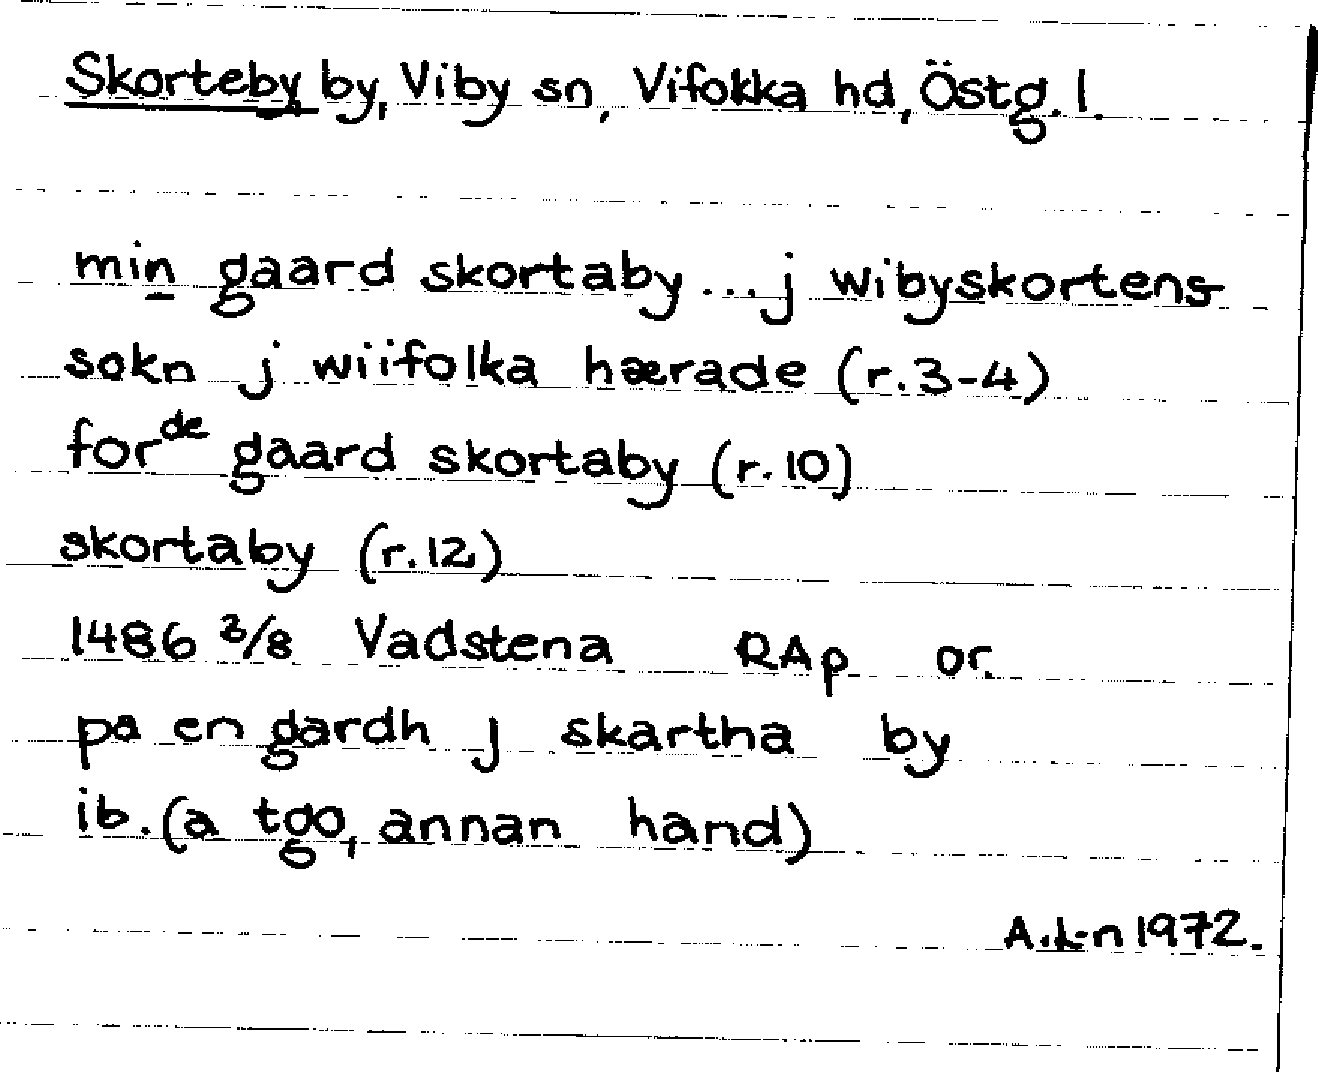 Skorteby by, Viby sn, Vifokka hd, Östg. l.
min gaard skortaby ... j wibyskortens
sokn j wiifolka hærade (r.3-4)
forde gaard skortaby (r.10)
skortaby (r.12)
1486 2/8 Vadstena RAp or.
pa en gardh j skartha by
ib. (a tgo, annan hand)
A.L-n 1972.